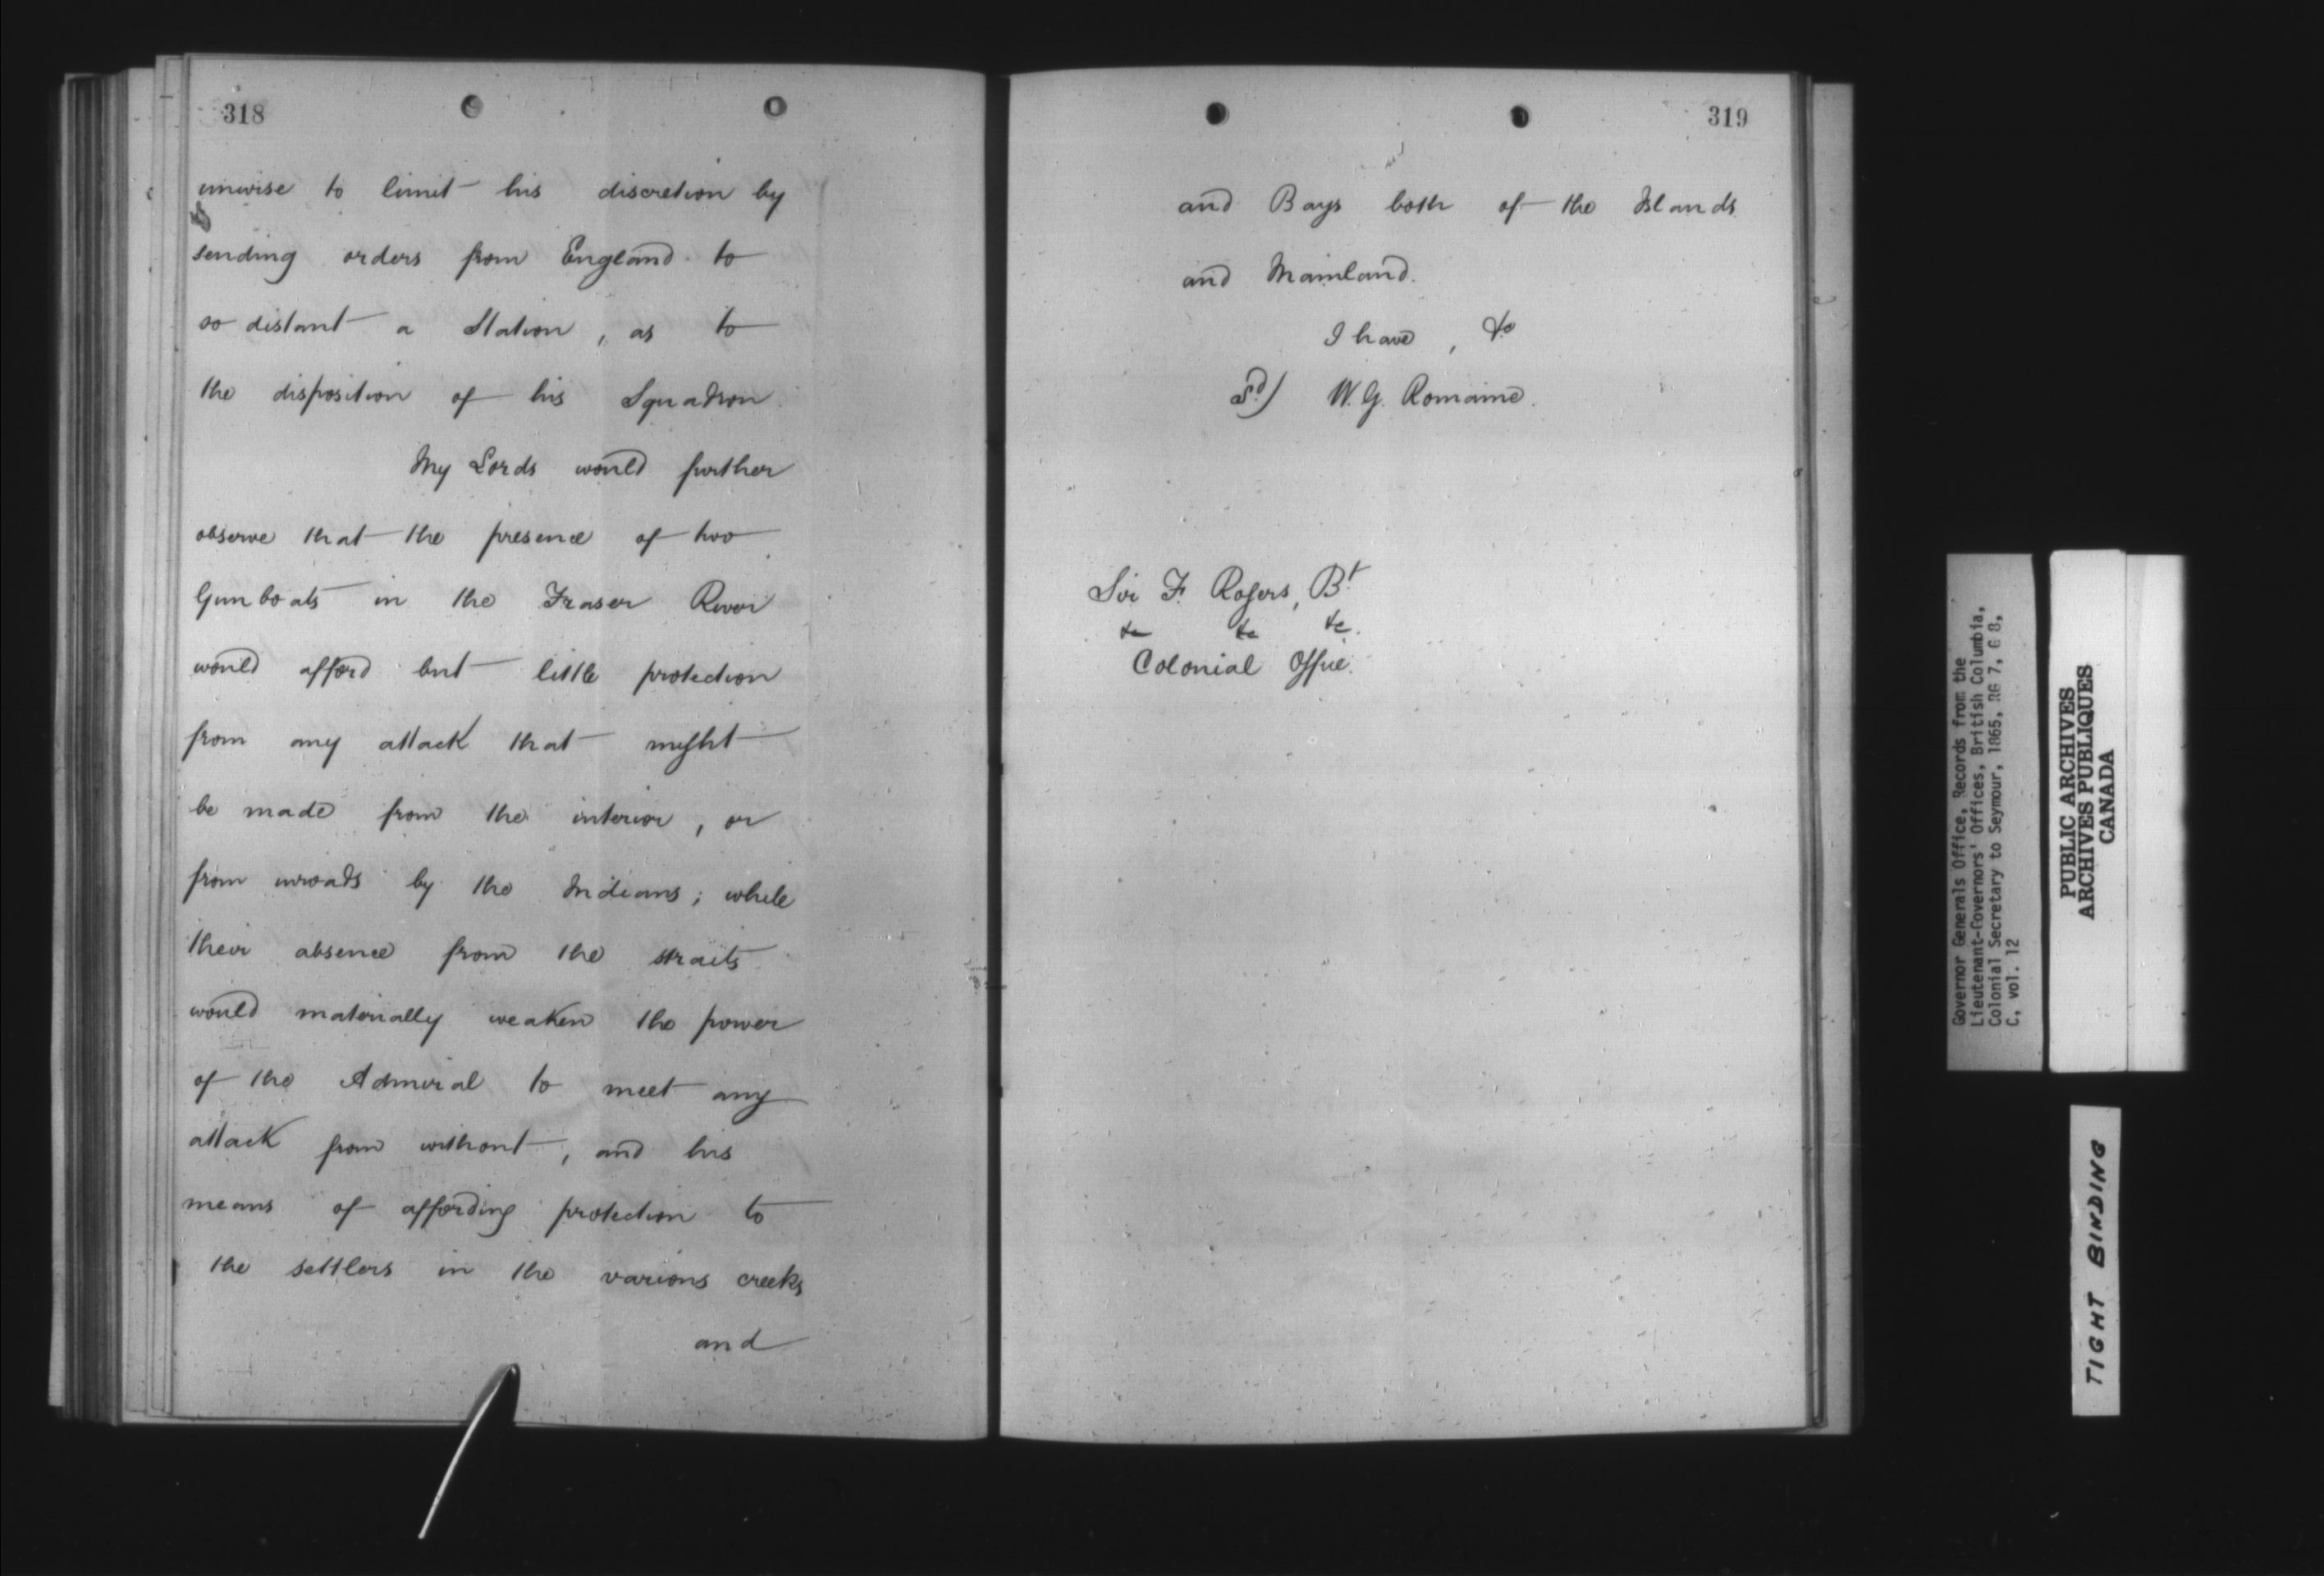 318
unwise to limit his discretion by
sending orders from England to
so distant a Station, as to
the disposition of his Squadron.
My Lords would further
observe that the presence of two
Gunboats in the Fraser River
would afford but little protection
from any attack that might
be made from the interior, or
from inroads by the Indians; while
their absence from the straits
would materially weaken the power
of the Admiral to meet any
attack from without, and his
means of affording protection to
the settlers in the various creeks
and
319
and Bays both of the Islands
and Mainland.
I have, &c
Sd) W. G. Romaine.
Sir F. Rogers, Bt
&c &c &c.
Colonial Office.
Governor Generals Office, Records from the
Lieutenant-Governors' Offices, British Columbia,
Colonial Secretary to Seymour, 1865, RG 7, G 8,
C, vol. 12
PUBLIC ARCHIVES
ARCHIVES PUBLIQUES
CANADA
TIGHT BINDING